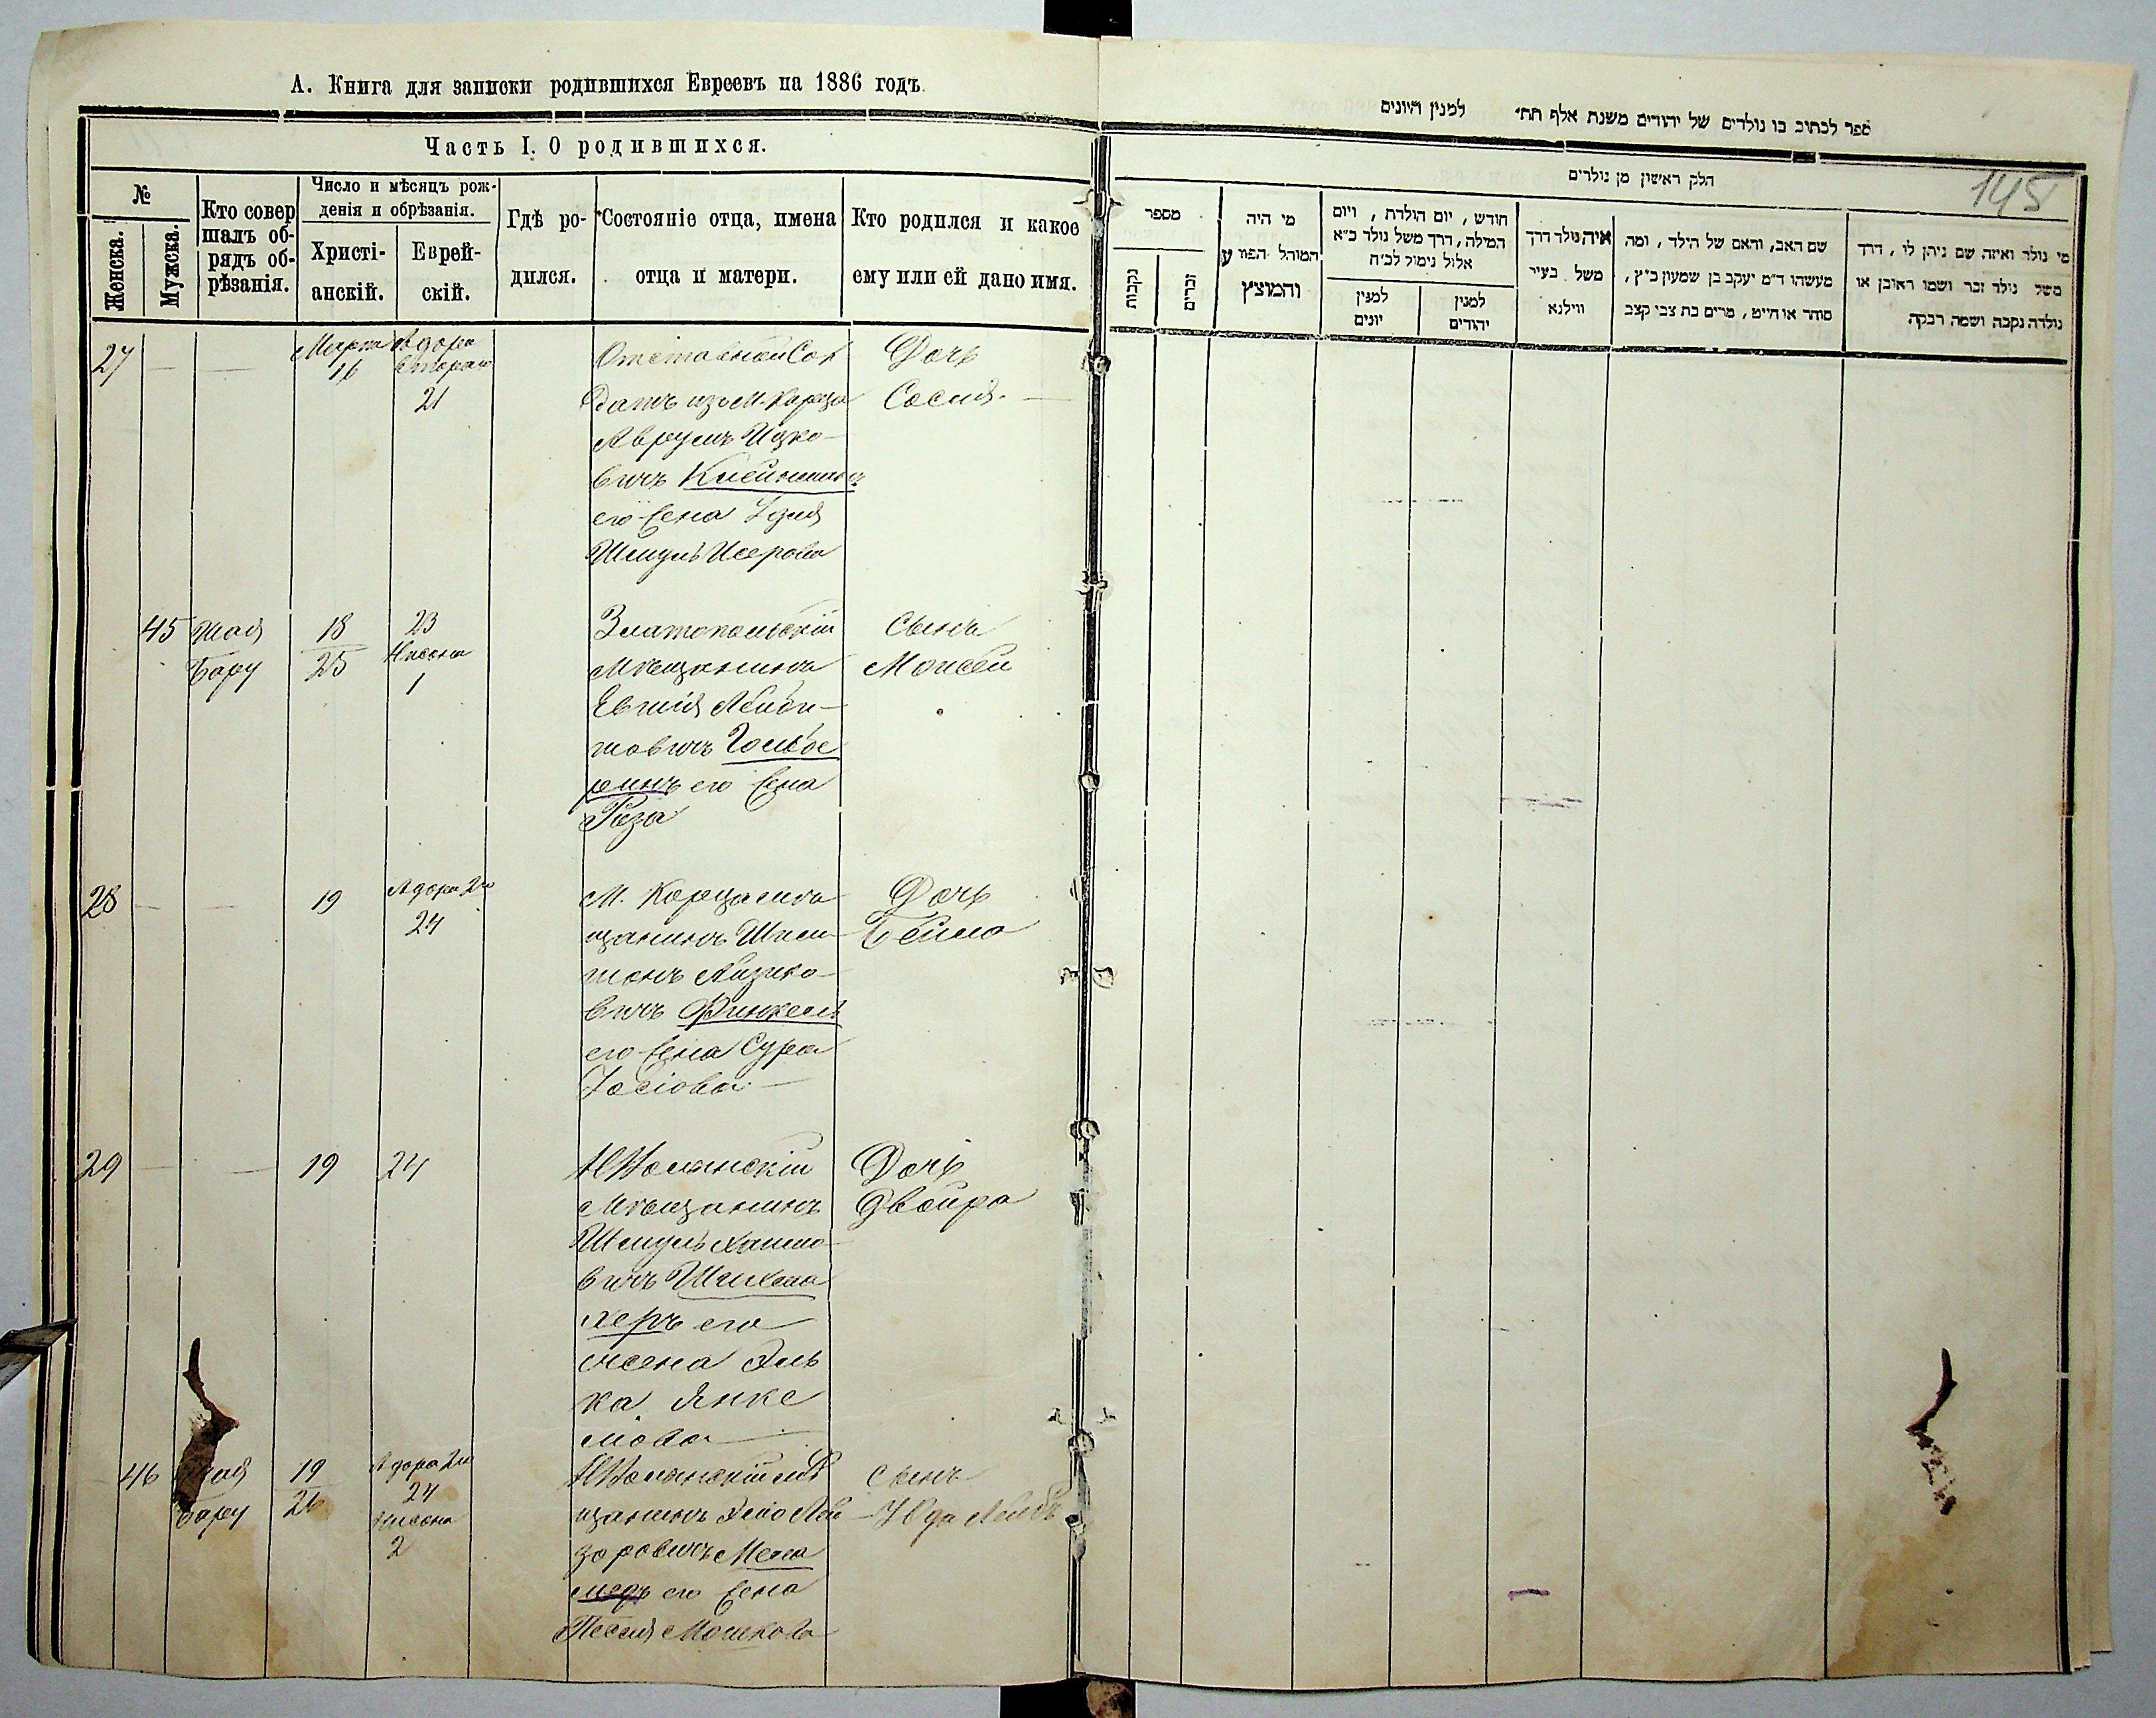 А. Книга для записки родившихся Евреевъ на 1886 годъ.
Часть I. О родившихся.
№
Женска.
Мужска.
Кто совер
шалъ об-
рядъ об-
рѣзанія.
Число и мѣсяцъ рож-
денія и обрѣзанія.
Христі-
анскій.
Еврей-
скій.
Гдѣ ро-
дился.
Состояніе отца, имена
отца и матери.
Кто родился и какое
ему или ей дано имя.
27 — — Марта 16 Адора вторая 21
Отставной Сол
датъ изъ М. Корца
Аврумъ Ицко-
вичъ
его жена Удля
Шмуль Исерова
Дочь
Сосия. —
45 Шая Бару 18 25 23 Нисона 1
Златопольскій
мѣщанинъ
Евшія Лейби-
шовичъ Гольбе
ринъ его жена
Роза
Сынъ
Моисей
28 — — 19 Адора 2го 24
М. Корца мѣ
щанинъ Шли-
монъ Айзико-
вичъ Финкель
его жена Сура
Іосіова —
Дочь
Бейла
29 — — 19 24
НВолынскій
мѣщанинъ
Шмуль Хаимо-
вичъ
херъ его
жена Эль
ка Янке
лова —
Дочь
Двойра
46 Шая Бару 19 26 Адора 2го 24 Нисона 2
НВолынскій мѣ
щанинъ Эліо Лей
зоровичъ Мела
медъ его жена
Песия Мошкова
Сынъ
Юда Лейбъ
ספר לכתוב בו נולדים של יהודים משנת אלף תת״ למנין היונים
145
חלק ראשון מן נולדים
מספר
נקבות
זכרים
מי היה
המוהל הפורע
והמוצץ
חודש, יום הולדת, ויום
המילה, דרך משל נולד כ״א
אלול נימול לכ״ח
למנין
יונים
למנין
יהודים
איה נולד דרך
משל בעיר
ווילנא
שם האב, והאם של הילד, ומה
מעשהו ד״מ יעקב בן שמעון כ״ץ,
סוחר או חייט, מרים בת צבי קצב
מי נולד ואיזה שם ניתן לו, דרך
משל נולד זכר ושמו ראובן או
נולדה נקבה ושמה רבקה